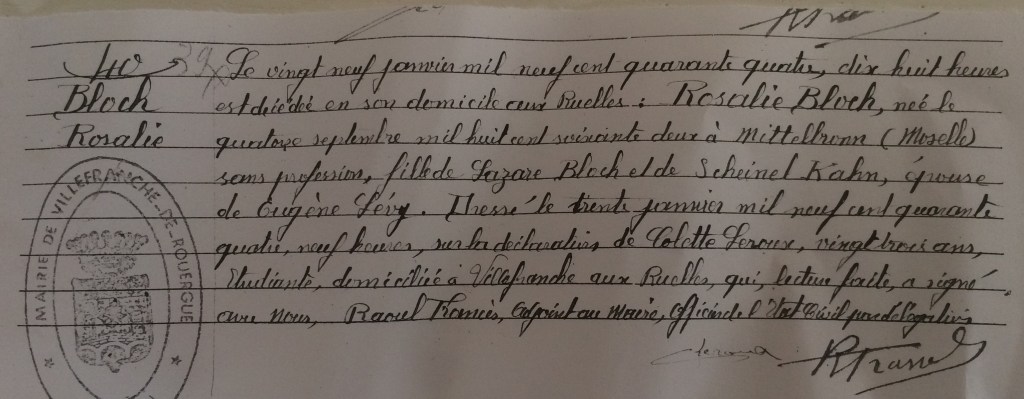 40
Bloch
Rosalie
Le vingt neuf janvier mil neuf cent quarante quatre, dix huit heures
est décédée en son domicile aux Ruelles : Rosalie Bloch, née le
quatorze septembre mil huit cent soixante deux à Mittelbronn (Moselle)
sans profession, fille de Lazare Bloch et de Scheinel Kahn, épouse
de Eugène Lévy. Dressé le trente janvier mil neuf cent quarante
quatre, neuf heures, sur la déclaration de Colette Leroux, vingt trois ans,
étudiante, domiciliée à Villefranche aux Ruelles, qui, lecture faite, a signé
avec nous, Raoul, adjoint au Maire, Officier de l'Etat Civil par délégation
MAIRIE DE VILLEFRANCHE-DE-ROUERGUE